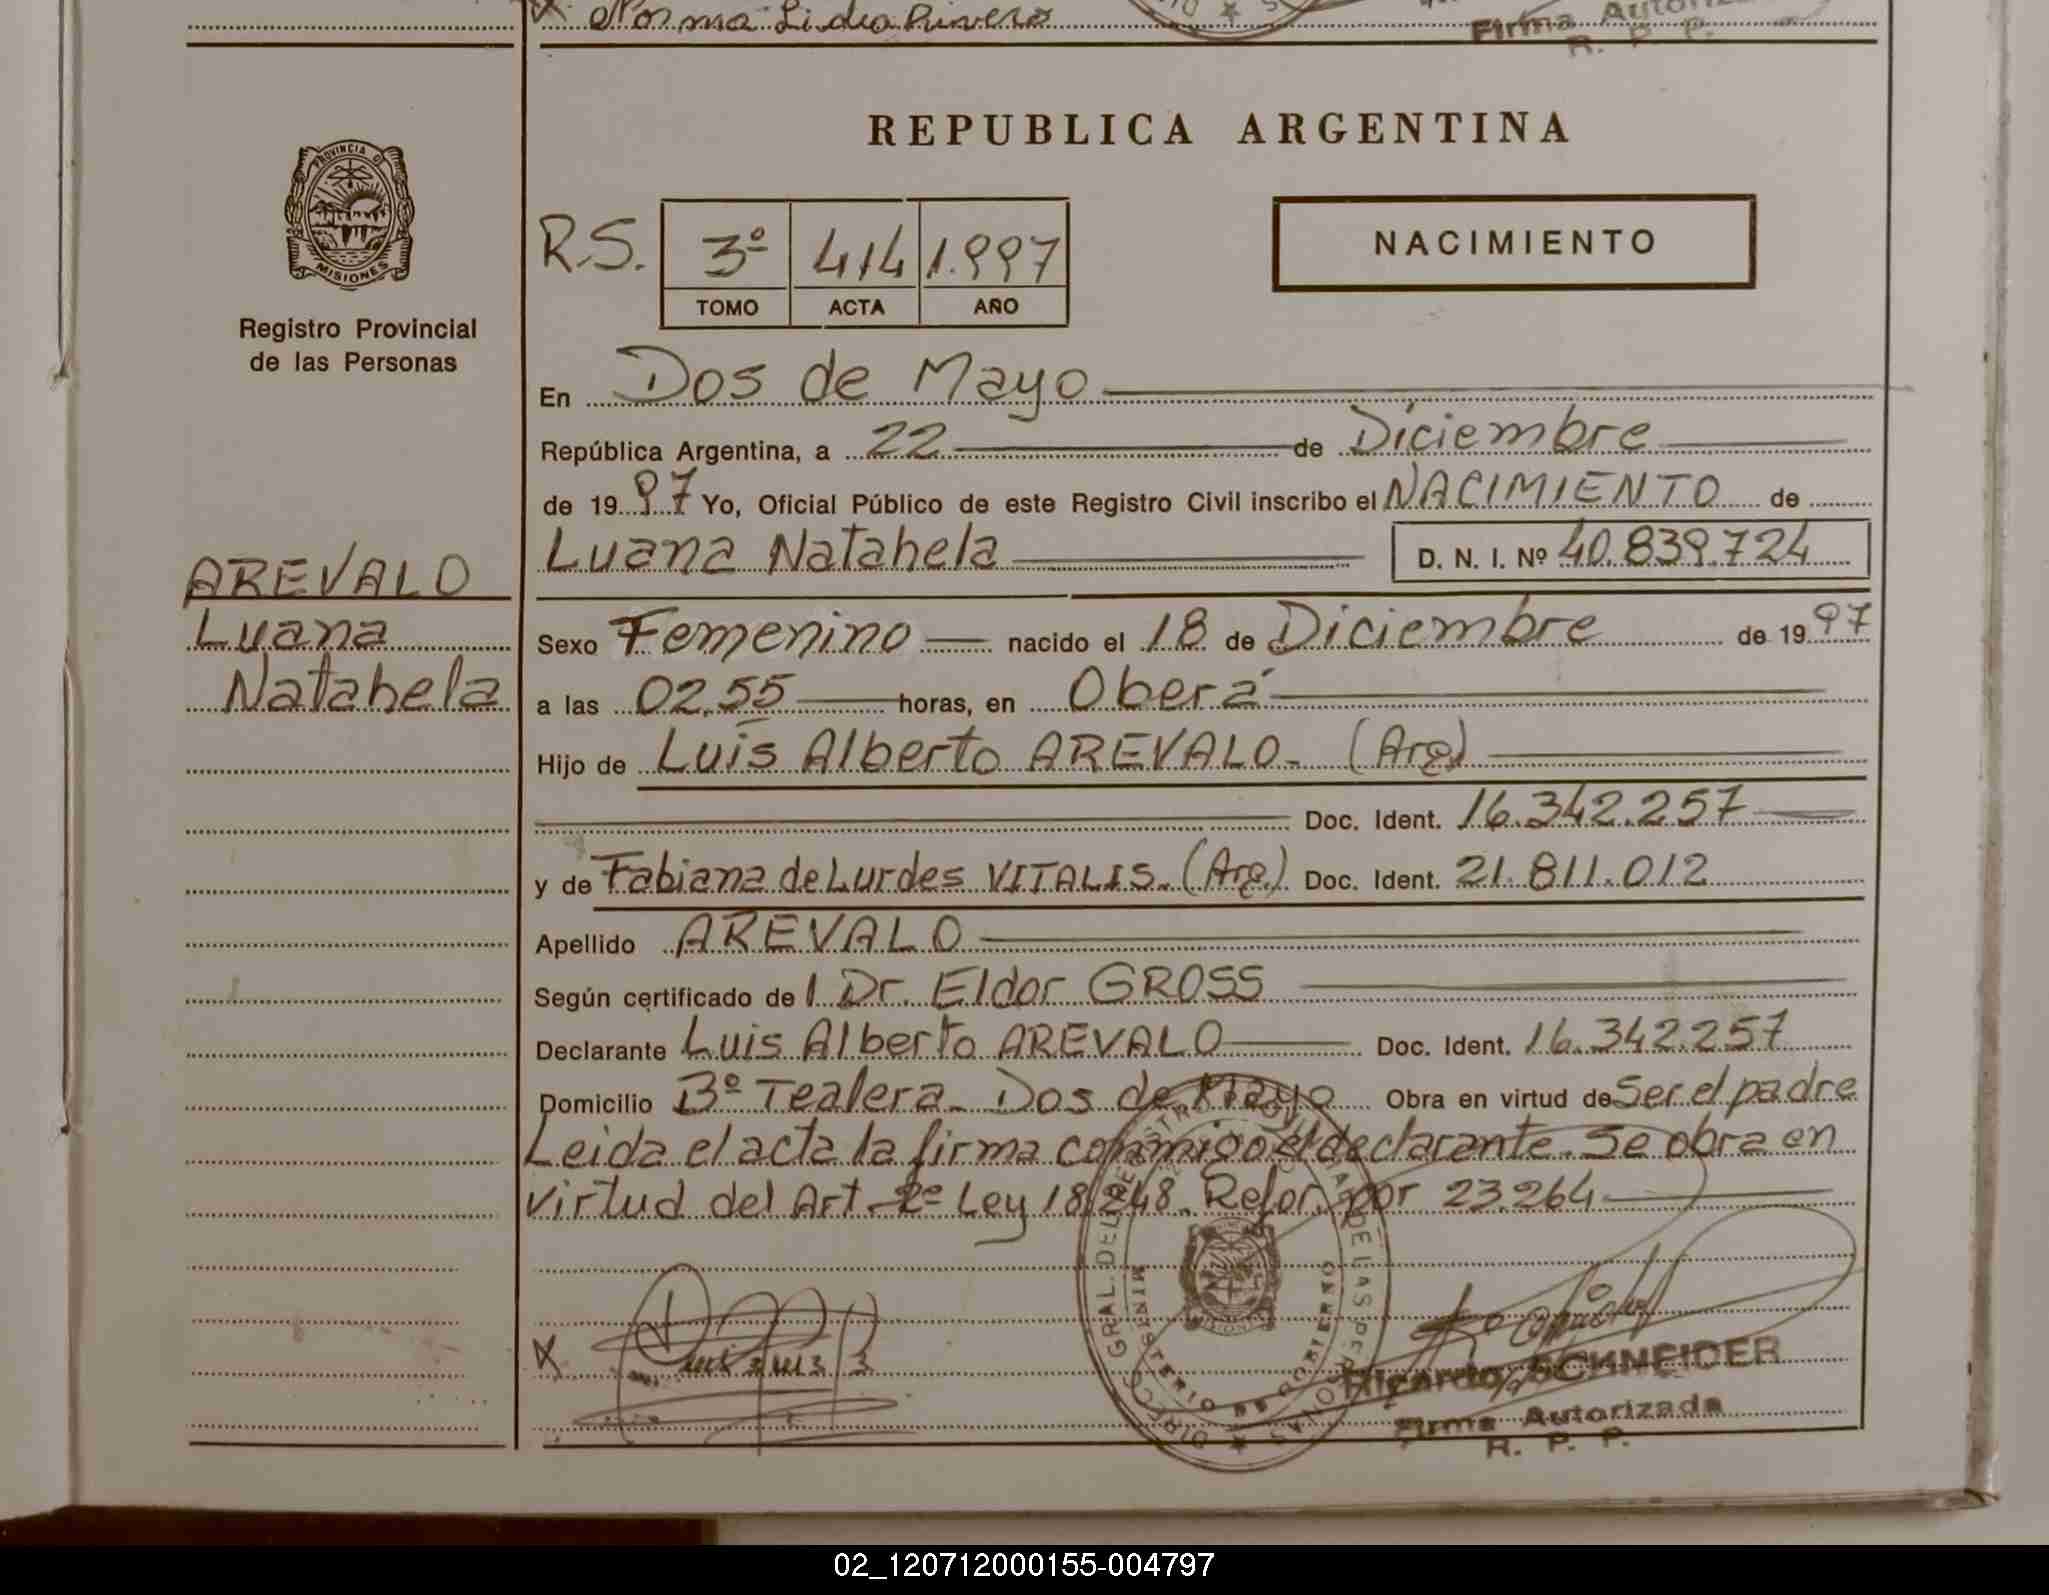 Norma Lidia Rivero
Firma Autoriz
R. P. P.
REPUBLICA ARGENTINA
PROVINCIA DE
MISIONES
Registro Provincial
de las Personas
R.S. 3º 414 1.997
TOMO ACTA AÑO
NACIMIENTO
En Dos de Mayo
República Argentina, a 22 de Diciembre
de 1997 Yo, Oficial Público de este Registro Civil inscribo el NACIMIENTO de
Luana Natahela D. N. I. Nº 40.839.724
AREVALO
Luana
Natahela
Sexo Femenino nacido el 18 de Diciembre de 1997
a las 02,55 horas, en Oberá
Hijo de Luis Alberto AREVALO - (Arg)
Doc. Ident. 16.342.257
y de Fabiana de Lurdes VITALIS. (Arg.) Doc. Ident. 21.811.012
Apellido AREVALO
Según certificado de l Dr. Eldor GROSS
Declarante Luis Alberto AREVALO Doc. Ident. 16.342.257
Domicilio Bº Tealera - Dos de Mayo Obra en virtud de Ser el padre
Leida el acta la firma conmigo el declarante. Se obra en
virtud del Art 2º Ley 18.248. Refor. por 23.264
DIREC. GRAL. DEL REGISTRO DE LAS PERSONAS
MINISTERIO DE GOBIERNO
X
Ricardo SCHNEIDER
Firma Autorizada
R. P. P.
02_120712000155-004797